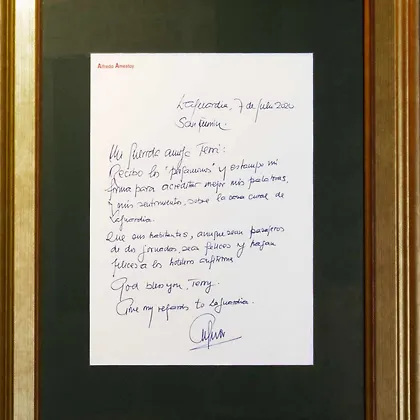 Alfredo Amestoy
Laguardia, 7 de Julio 2020
San Fermín.
Mi querido amigo Terri:
Recibo los "pergaminos" y estampo mi
firma para acreditar mejor mis palabras,
y mis sentimientos, sobre la casa cural de
Laguardia.
Que sus habitantes, aunque sean pasajeros
de dos jornadas, sean felices y hagan
felices a los hoteleros
God bless you, Terry.
Give my regards to Laguardia.